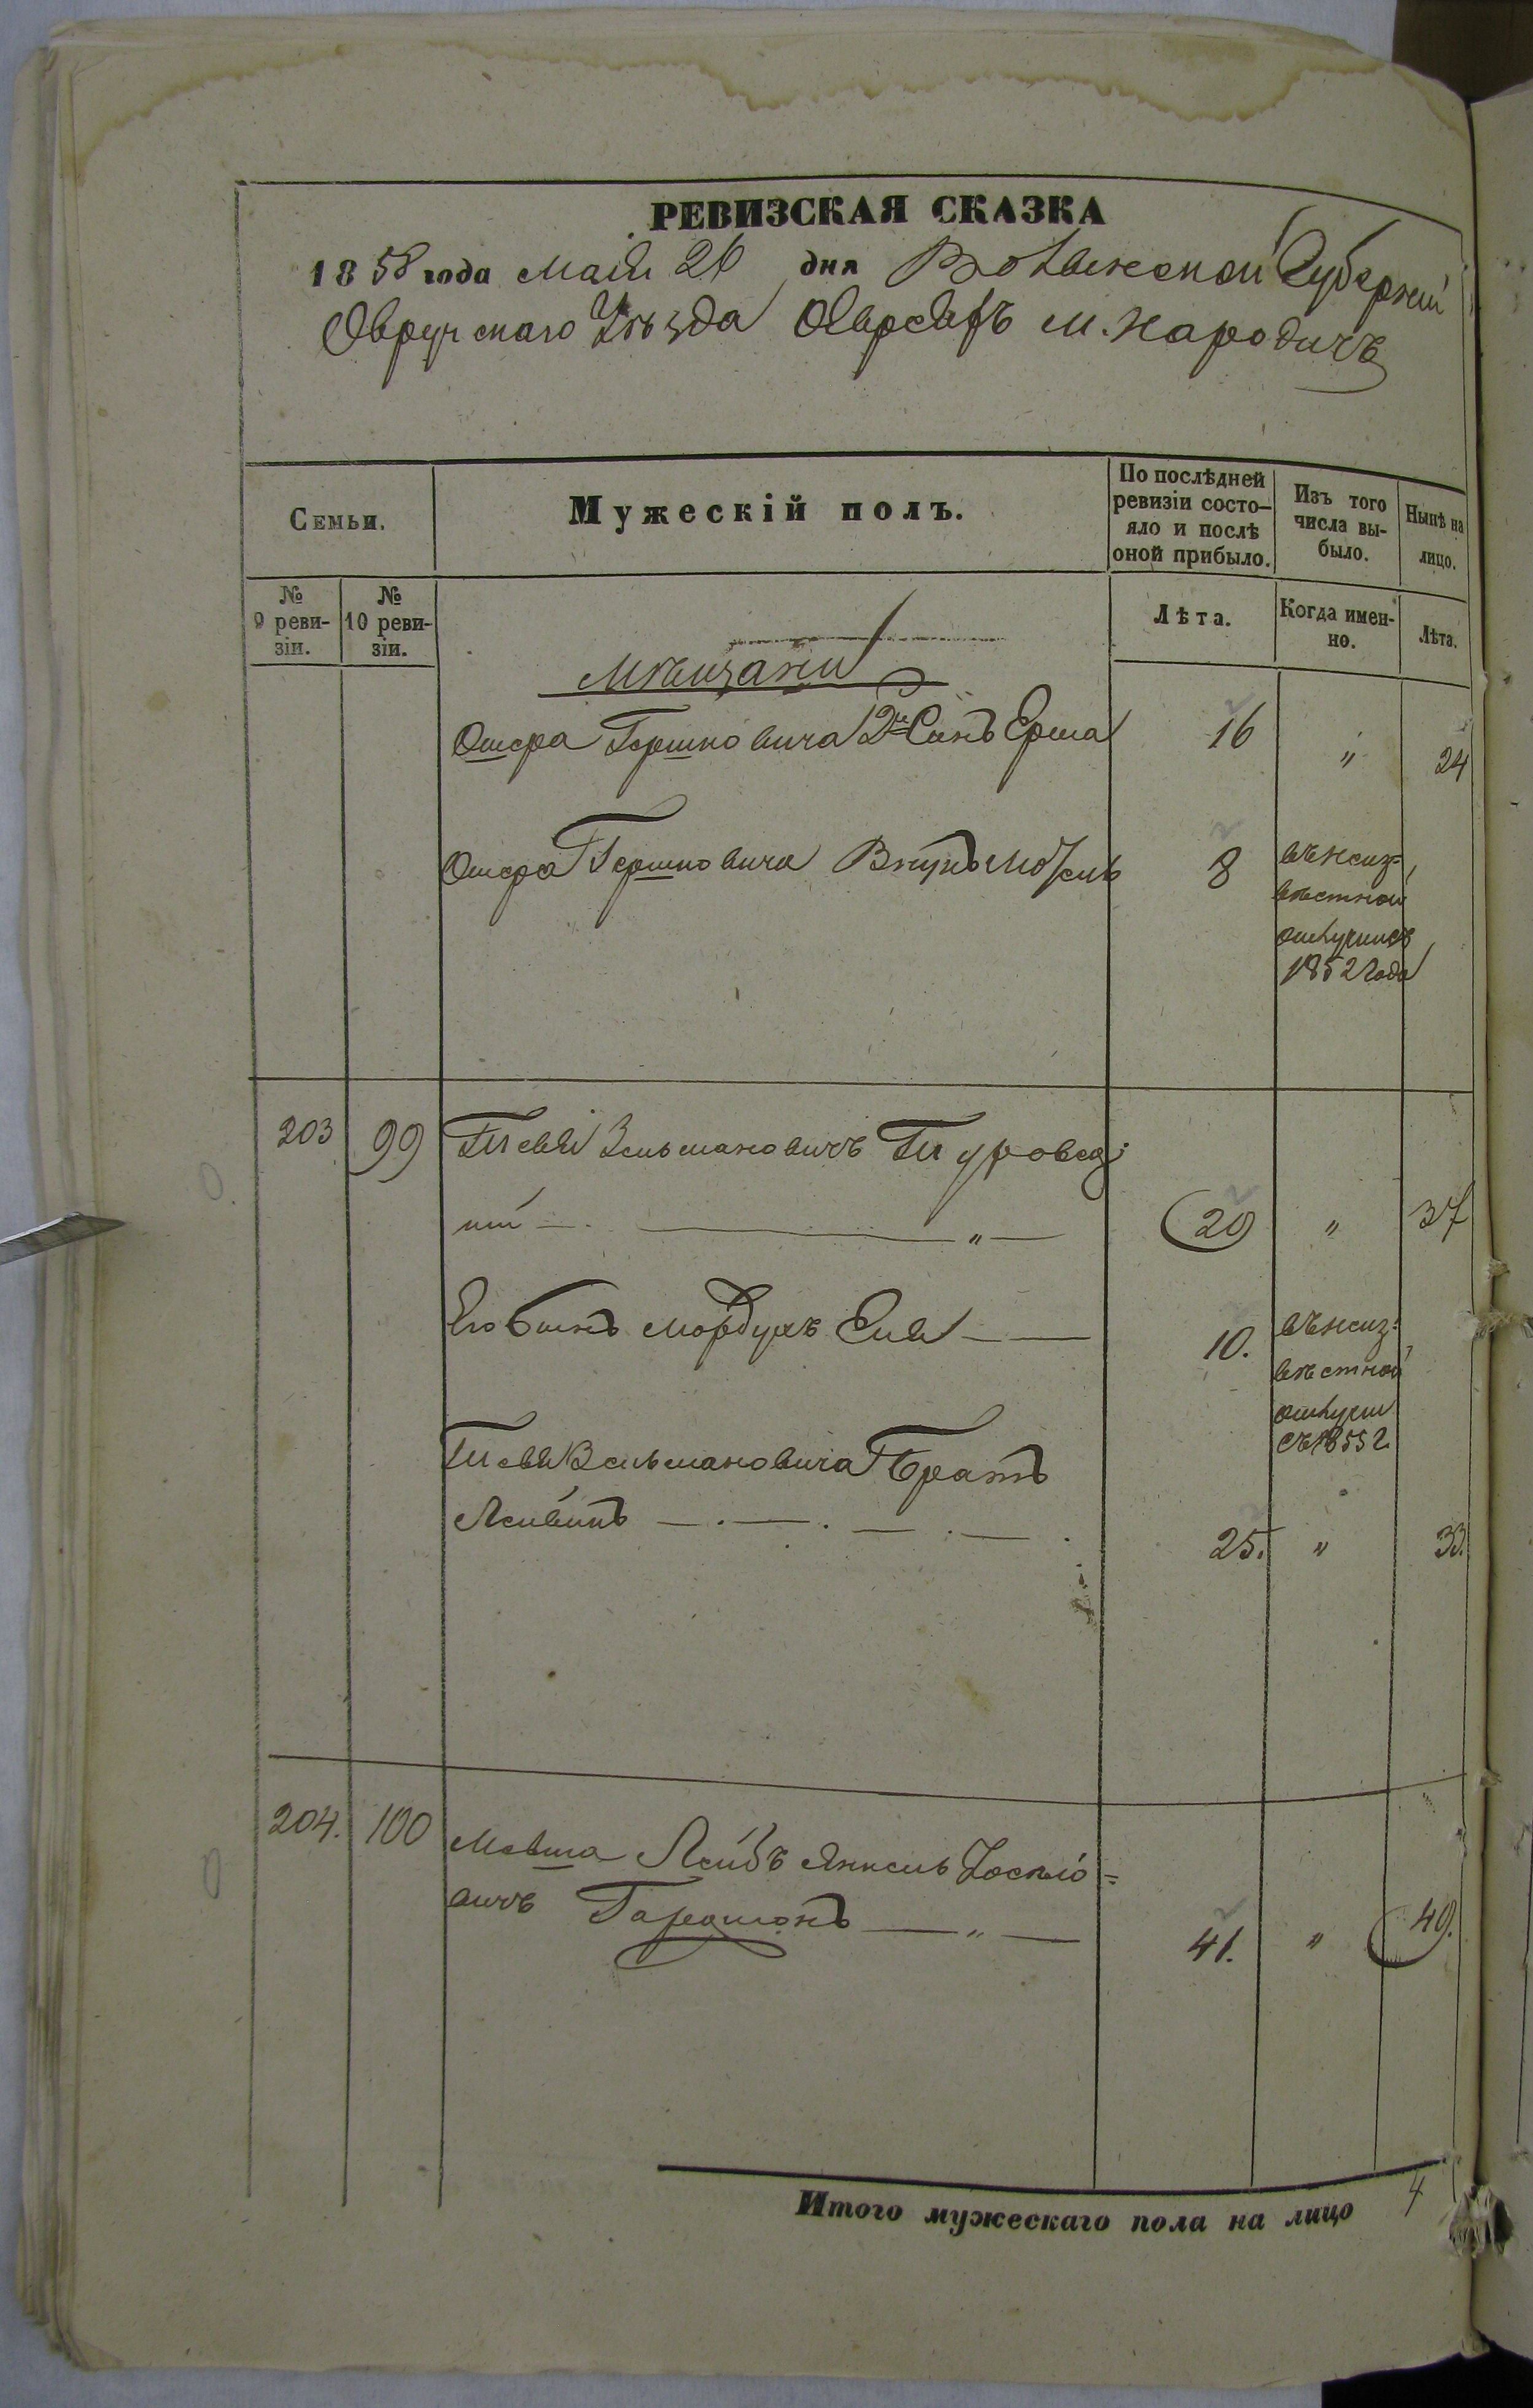 РЕВИЗСКАЯ СКАЗКА
1858 года Мая 26 дня Волынской Губерніи
Овручскаго Уѣзда Евреевъ м. Народичъ
Семьи.
Мужескій полъ.
По послѣдней ревизіи состо-
яло и послѣ
оной прибыло.
Изъ того
числа вы-
было.
Нынѣ на
лицо.
№
9 реви-
зіи.
№
10 реви-
зіи.
Лѣта.
Когда имен-
но.
Лѣта.
Мѣщани
Ошера Гершковича 2й Сынъ Ерша 16 " 24
Ошера Гершковича Внукъ 8 въ неиз-
вѣстной
отлучкѣ съ
1852 года
203 99 Тевя Зельмановичъ Туровец-
кій " 29 " 37
Его Сынъ Мордухъ 10. въ неиз-
вѣстной
отлучки
съ 1855 г
Тевя Зельмановича Братъ
Лейвикъ 25. " 33.
204. 100 Мовша Лейбъ Янкель Іоселіо=
вичъ 41. " 49.
Итого мужескаго пола на лицо 4